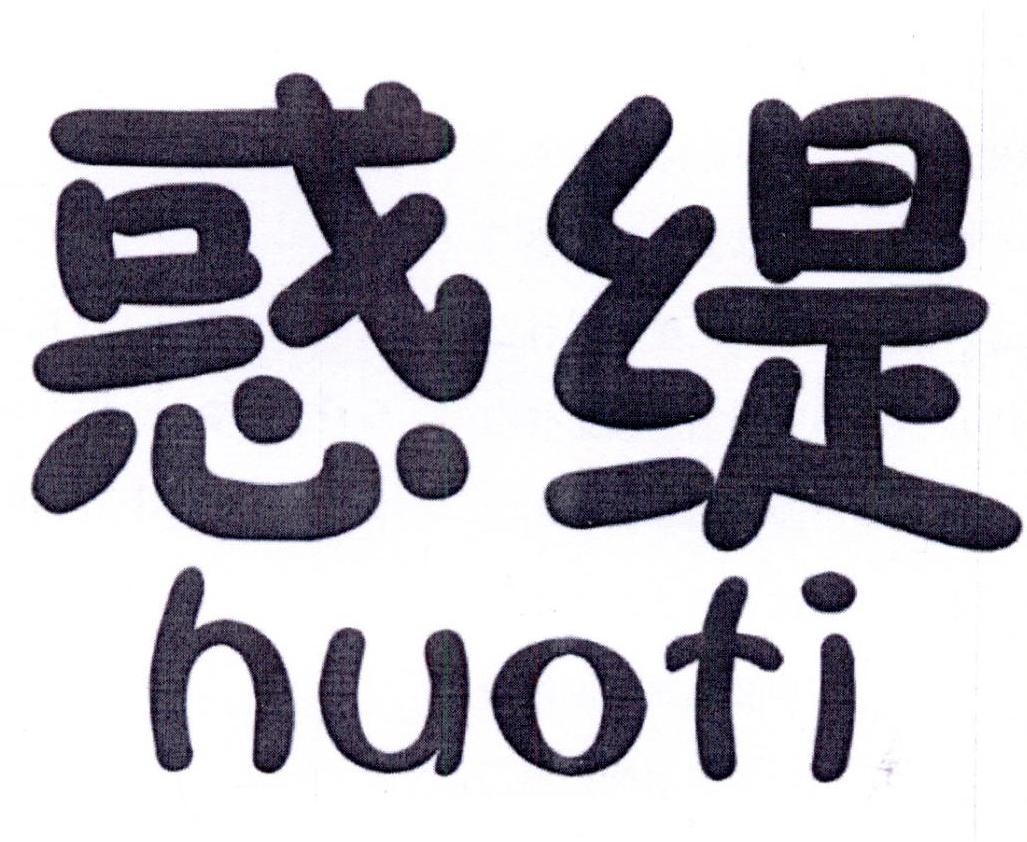 惑缇
huoti